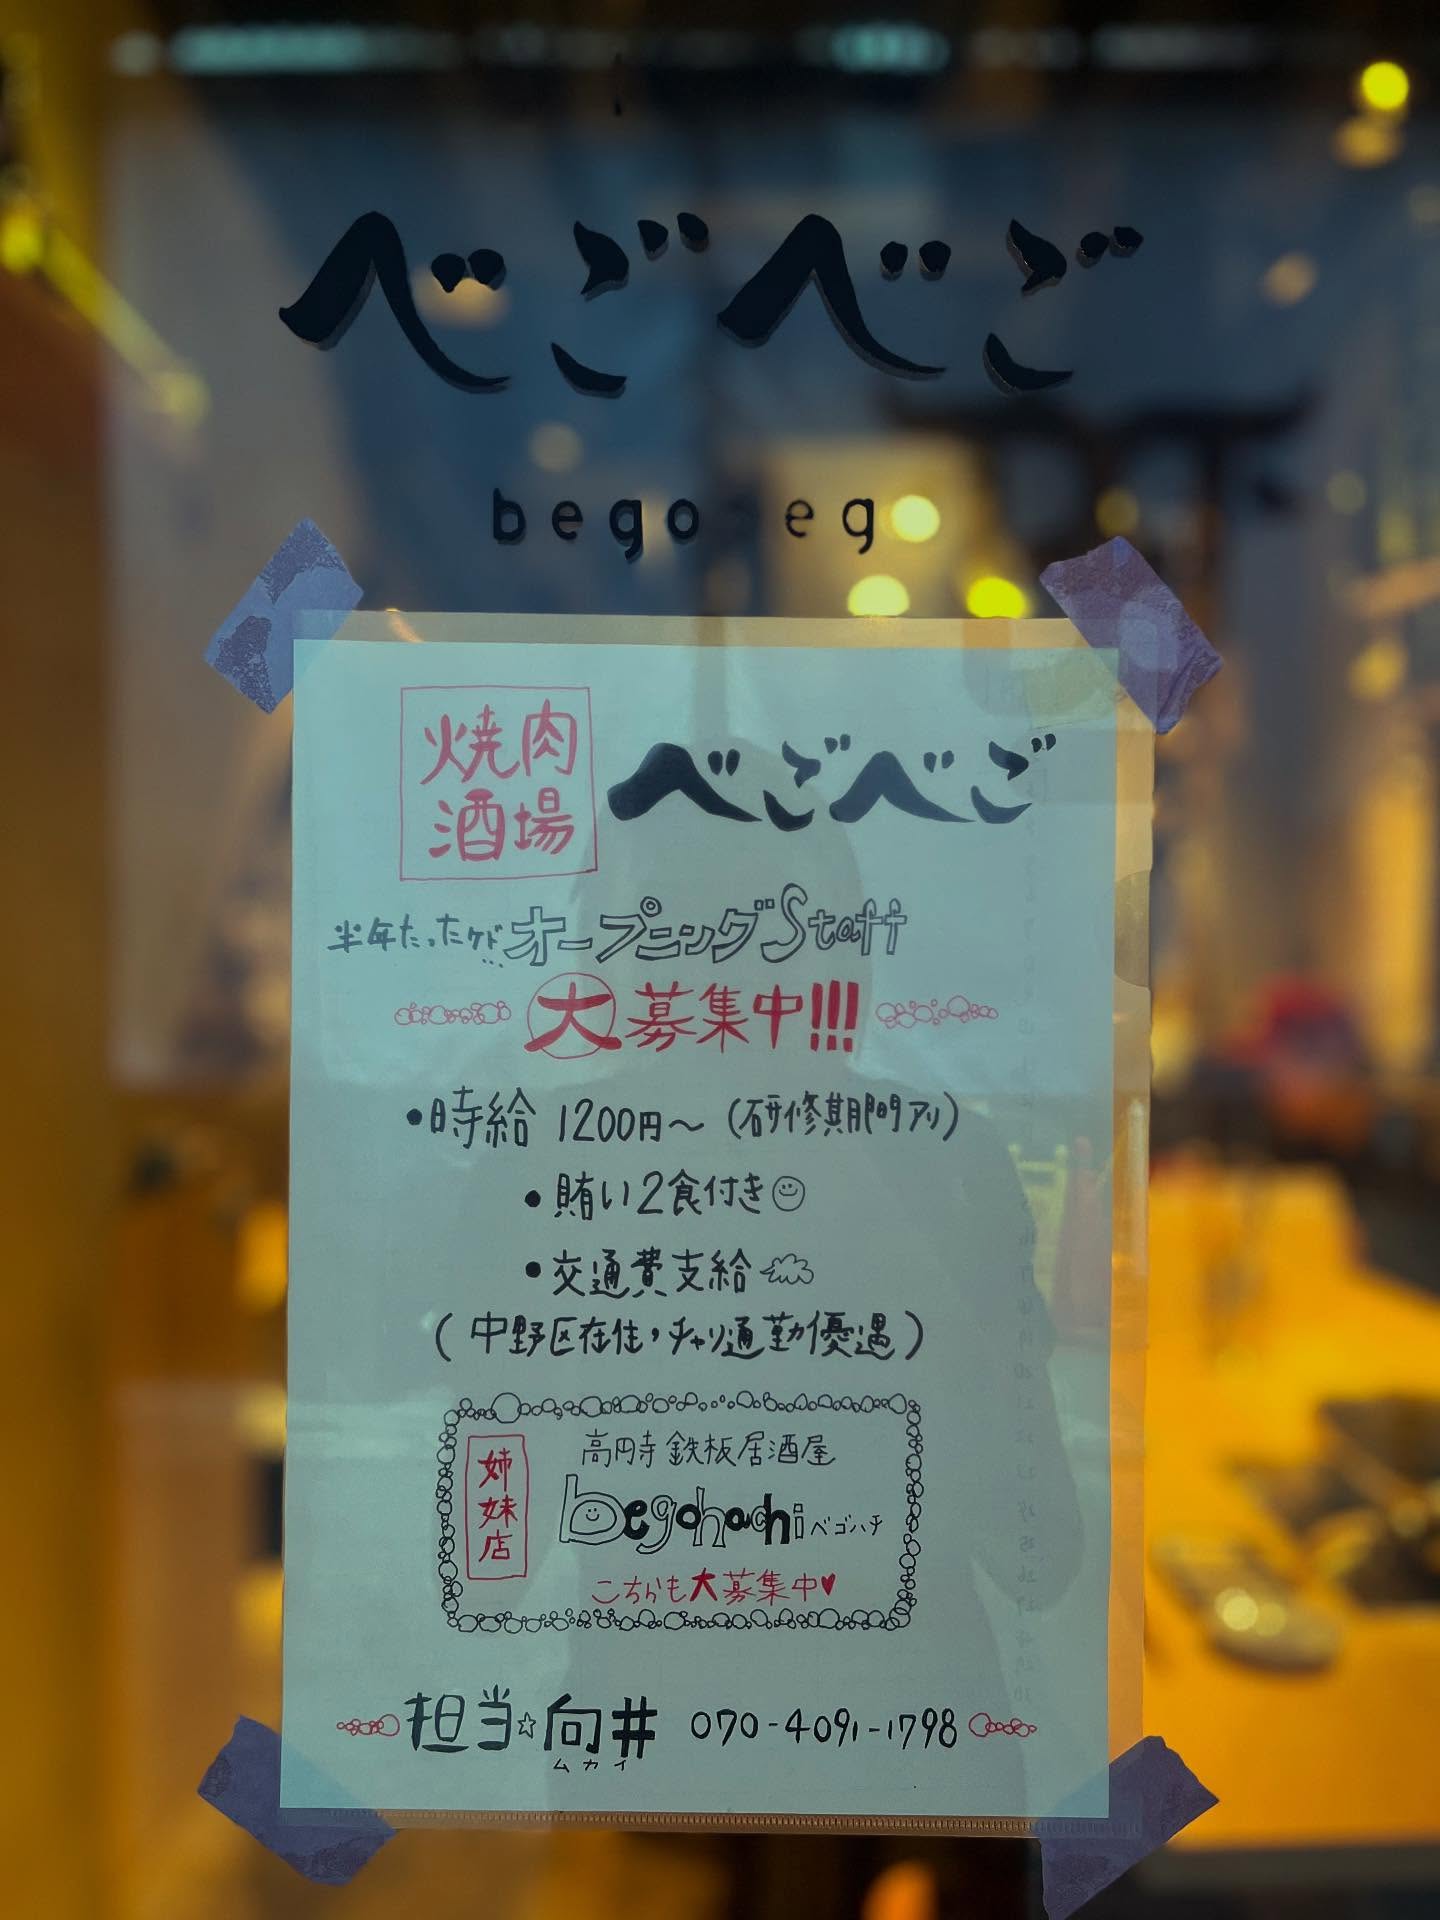 べごべご
bego eg
焼肉
酒場
べごべご
半年たったケド... オープニングStaff
大募集中!!!
・時給 1200円〜 (研修期間アリ)
・賄い2食付き
・交通費支給
(中野区在住、チャリ通勤優遇)
姉妹店
高円寺 鉄板居酒屋
begohachi ベゴハチ
こちらも大募集中♥
担当☆向井 070-4091-1798
ムカイ